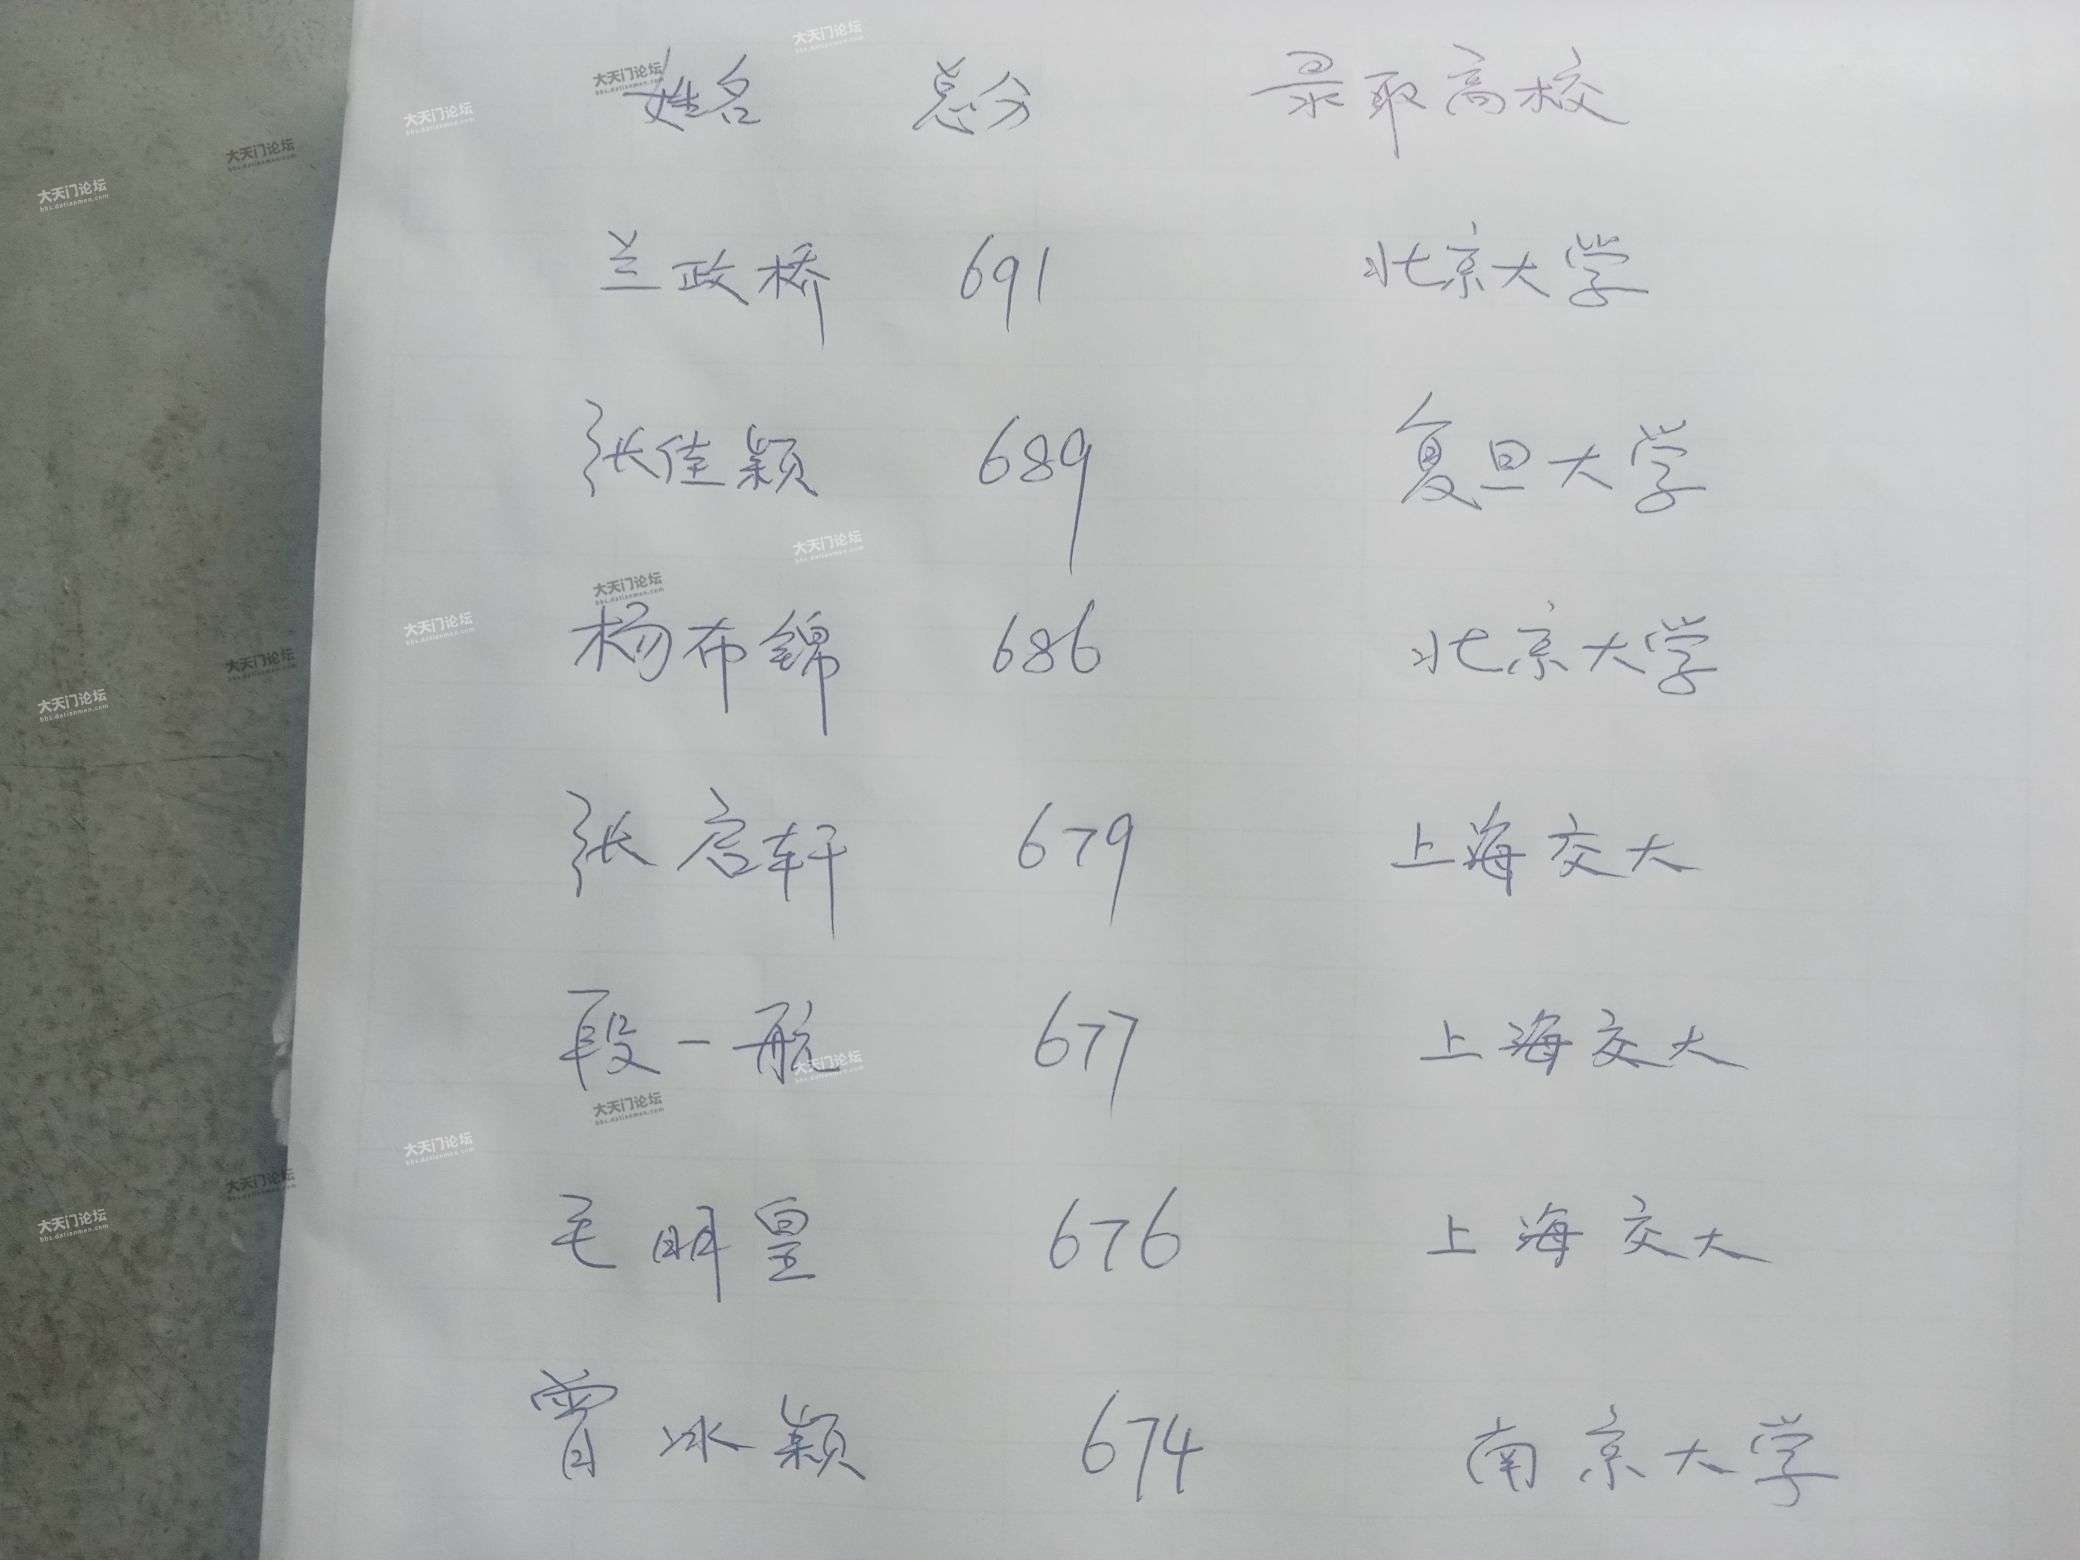 姓名 总分 录取高校
兰政桥 691 北京大学
张佳颖 689 复旦大学
杨布锦 686 北京大学
张启轩 679 上海交大
段一航 677 上海交大
毛明皇 676 上海交大
曾冰颖 674 南京大学
大天门论坛
bbs.datianmen.com